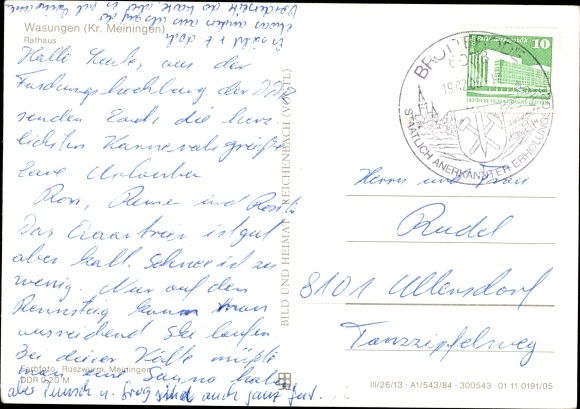 Wasungen (Kr. Meiningen)
Rathaus
Hallo Leute, aus der
Faschingshochburg der DDR
senden Euch die herz-
lichsten Karnevalsgrüße
Eure Urlauber
Ron, und
Das Quartier ist gut
aber kalt. Schnee ist zu
wenig. Nur auf dem
Rennsteig kann man
ausreichend Ski laufen
Bei dieser Kälte müßte
man zur Sauna
aber Punsch u. Grog sind auch ganz gut.
Farbfoto: Ruszwurm, Meiningen
DDR 0,20 M
BILD UND HEIMAT REICHENBACH (VOGTL)
BROTTERODE
STAATLICH ANERKANNTER ERHOLUNGS
10
Herrn und Frau
Rudel
8101 Ullersdorf
Tanzzipfelweg
III/26/13 · A1/543/84 · 300543 01 11 0191/05